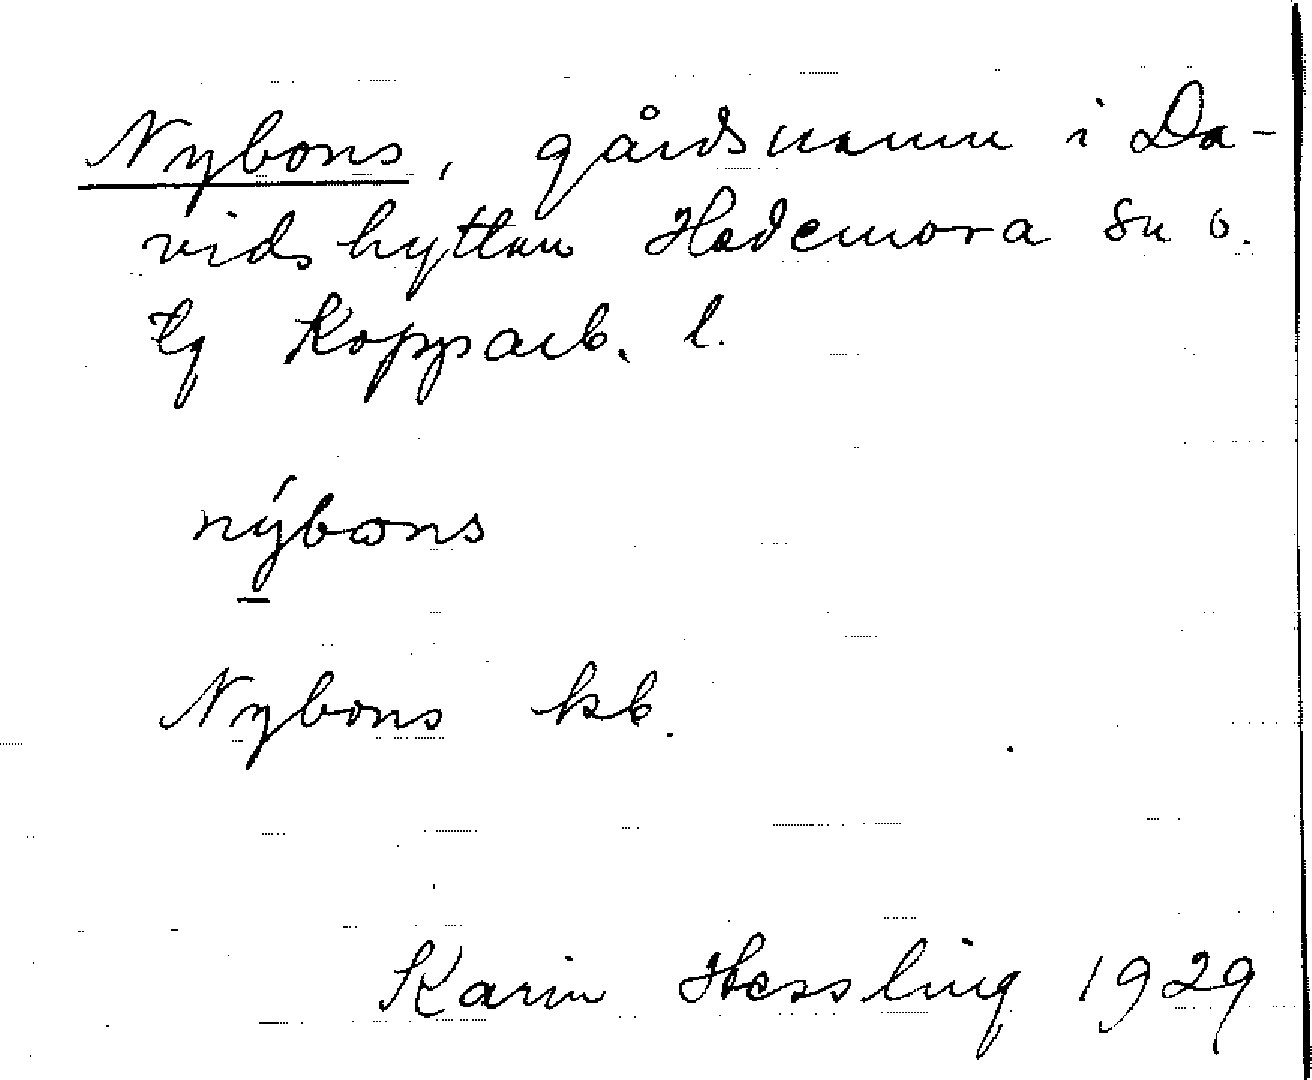 Nybons, gårdsnamn i Da-
vidshyttan Hedemora sn o.
tg Kopparb. l.
nýbɷns
Nybons kb.
Karin Hessling 1929